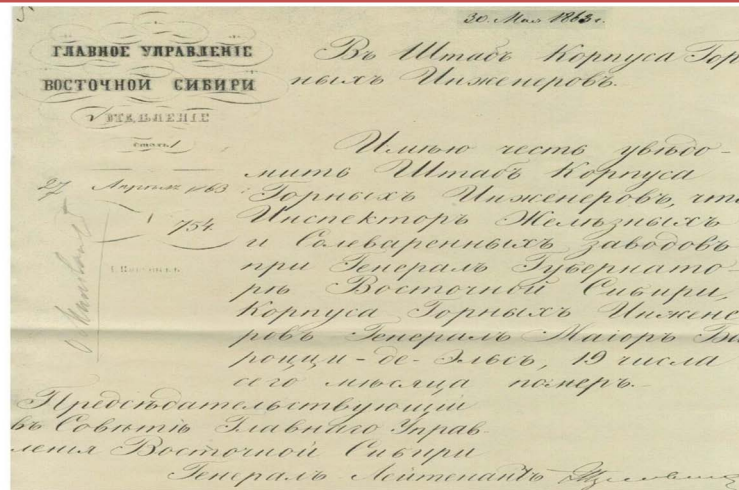 30. Мая 1863 г.
ГЛАВНОЕ УПРАВЛЕНІЕ
ВОСТОЧНОЙ СИБИРИ
ОТДѢЛЕНІЕ
столъ
27 Апрѣля 1863
754
г. Иркутскъ
Въ Штабъ Корпуса Гор
ныхъ Инженеровъ.
Имѣю честь увѣдо-
мить Штабъ Корпуса
Горныхъ Инженеровъ, что
Инспекторъ Желѣзныхъ
и Солеваренныхъ заводовъ
при Генералъ Губернато-
рѣ Восточной Сибири,
Корпуса Горныхъ Инжене
ровъ Генералъ Маіоръ Ба
роцци-де-Эльсъ, 19 числа
сего мѣсяца померъ.-
Предсѣдательствующій
въ Совѣтѣ Главнаго Управ-
ленія Восточной Сибири
Генералъ-Лейтенантъ